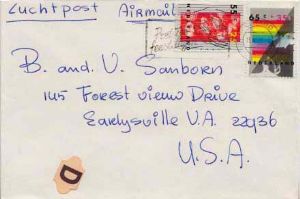 Luchtpost Airmail
55
65 + 35
NEDERLAND
B. and V. Sanborn
145 Forest view Drive
Earlysville V.A. 22936
U.S.A.
D